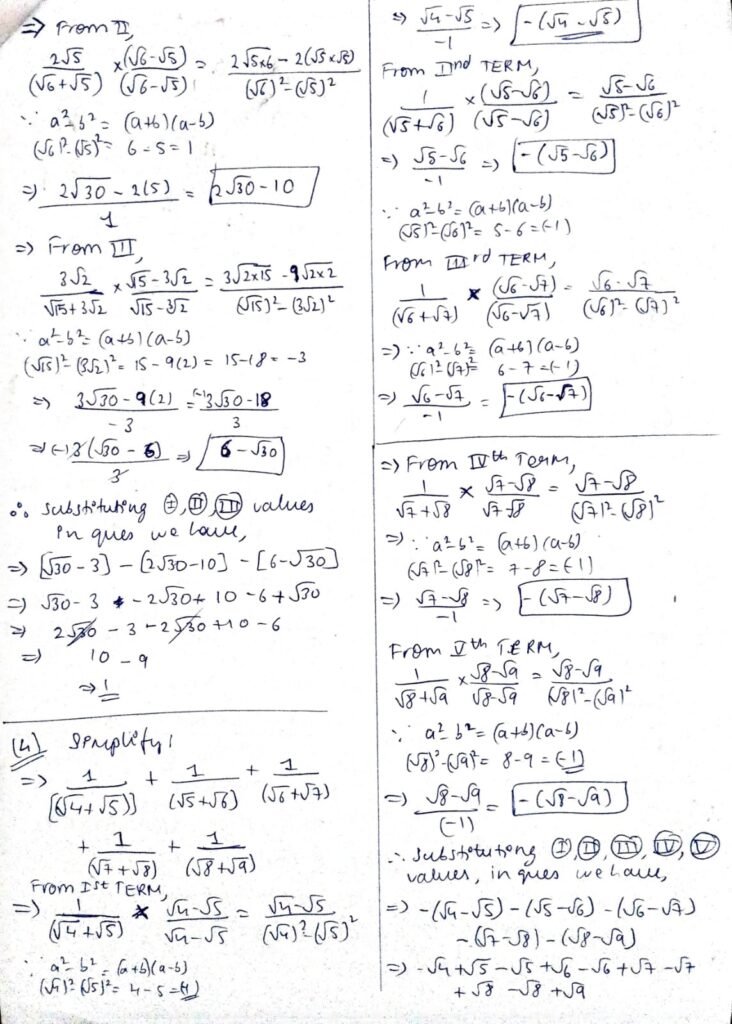 => From II,
2√5/(√6+√5) × (√6-√5)/(√6-√5) = 2√5×6 - 2(√5×√5)/(√6)²-(√5)²
∵ a²-b² = (a+b)(a-b)
(√6)²-(√5)² = 6-5=1
=> 2√30 - 2(5)/1 = 2√30-10
=> From III,
3√2/√15+3√2 × √15-3√2/√15-3√2 = 3√2×15 - 9√2×2/(√15)²-(3√2)²
∵ a²-b² = (a+b)(a-b)
(√15)²-(3√2)² = 15-9(2) = 15-18 = -3
=> 3√30-9(2)/-3 = (-)3√30-18/3
=> (-)3(√30-6)/3 => 6-√30
∴ substituting I, II, III values
in ques we have,
=> [√30-3] - [2√30-10] - [6-√30]
=> √30-3 - 2√30+10-6+√30
=> 2√30 - 3 - 2√30+10-6
=> 10-9
=> 1
(4) Simplify:
=> 1/[(√4+√5)] + 1/(√5+√6) + 1/(√6+√7)
+ 1/(√7+√8) + 1/(√8+√9)
From Ist TERM,
=> 1/(√4+√5) × √4-√5/√4-√5 = √4-√5/(√4)²-(√5)²
∵ a²-b² = (a+b)(a-b)
(√4)²-(√5)² = 4-5=(-1)
=> √4-√5/-1 => -(√4-√5)
From IInd TERM,
1/(√5+√6) × (√5-√6)/(√5-√6) = √5-√6/(√5)²-(√6)²
=> √5-√6/-1 => -(√5-√6)
∵ a²-b² = (a+b)(a-b)
(√5)²-(√6)² = 5-6=(-1)
From IIIrd TERM,
1/(√6+√7) × (√6-√7)/(√6-√7) = √6-√7/(√6)²-(√7)²
=> ∵ a²-b² = (a+b)(a-b)
(√6)²-(√7)² = 6-7=(-1)
=> √6-√7/-1 = -(√6-√7)
=> From IVth Term,
1/√7+√8 × √7-√8/√7-√8 = √7-√8/(√7)²-(√8)²
=> ∵ a²-b² = (a+b)(a-b)
(√7)²-(√8)² = 7-8=(-1)
=> √7-√8/-1 => -(√7-√8)
From Vth TERM,
1/√8+√9 × √8-√9/√8-√9 = √8-√9/(√8)²-(√9)²
∵ a²-b² = (a+b)(a-b)
(√8)²-(√9)² = 8-9=(-1)
=> √8-√9/(-1) = -(√8-√9)
∴ Substituting I, II, III, IV, V
values, in ques we have,
=> -(√4-√5) - (√5-√6) - (√6-√7)
-(√7-√8) - (√8-√9)
=> -√4+√5-√5+√6-√6+√7-√7
+√8-√8+√9